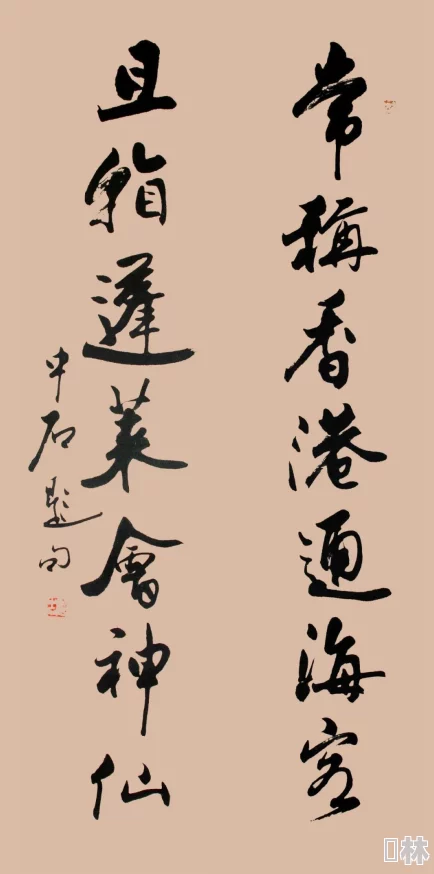 常稱香港通海客
且指蓬萊會神仙
中石題句
林